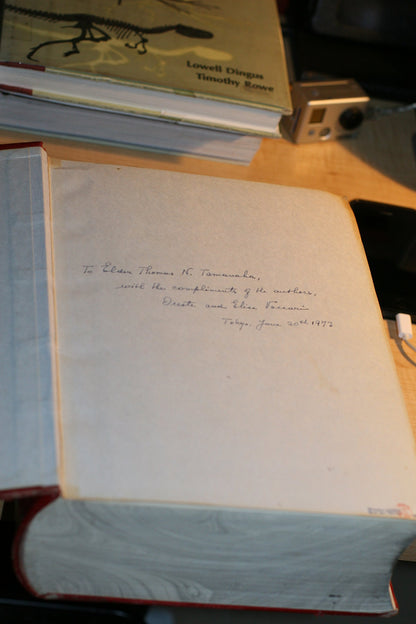 Lowell Dingus
Timothy Rowe
To Elder Thomas N. Tamanaha,
with the compliments of the authors,
Oreste and Elisa Vaccari
Tokyo, June 20th 1972